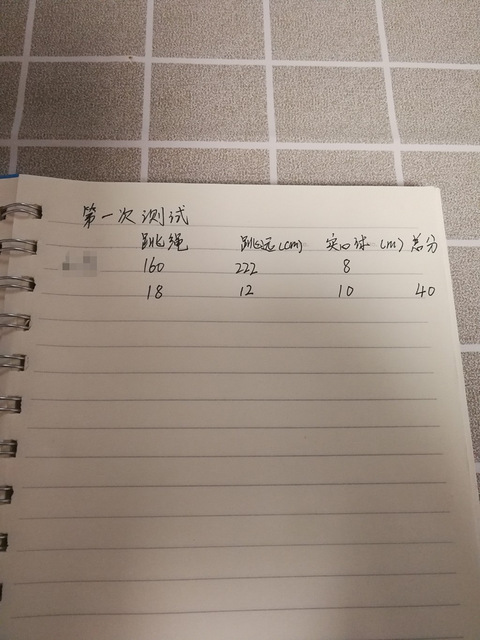 第一次测试
跳绳 跳远(cm) 实心球(m) 总分
160 222 8
18 12 10 40